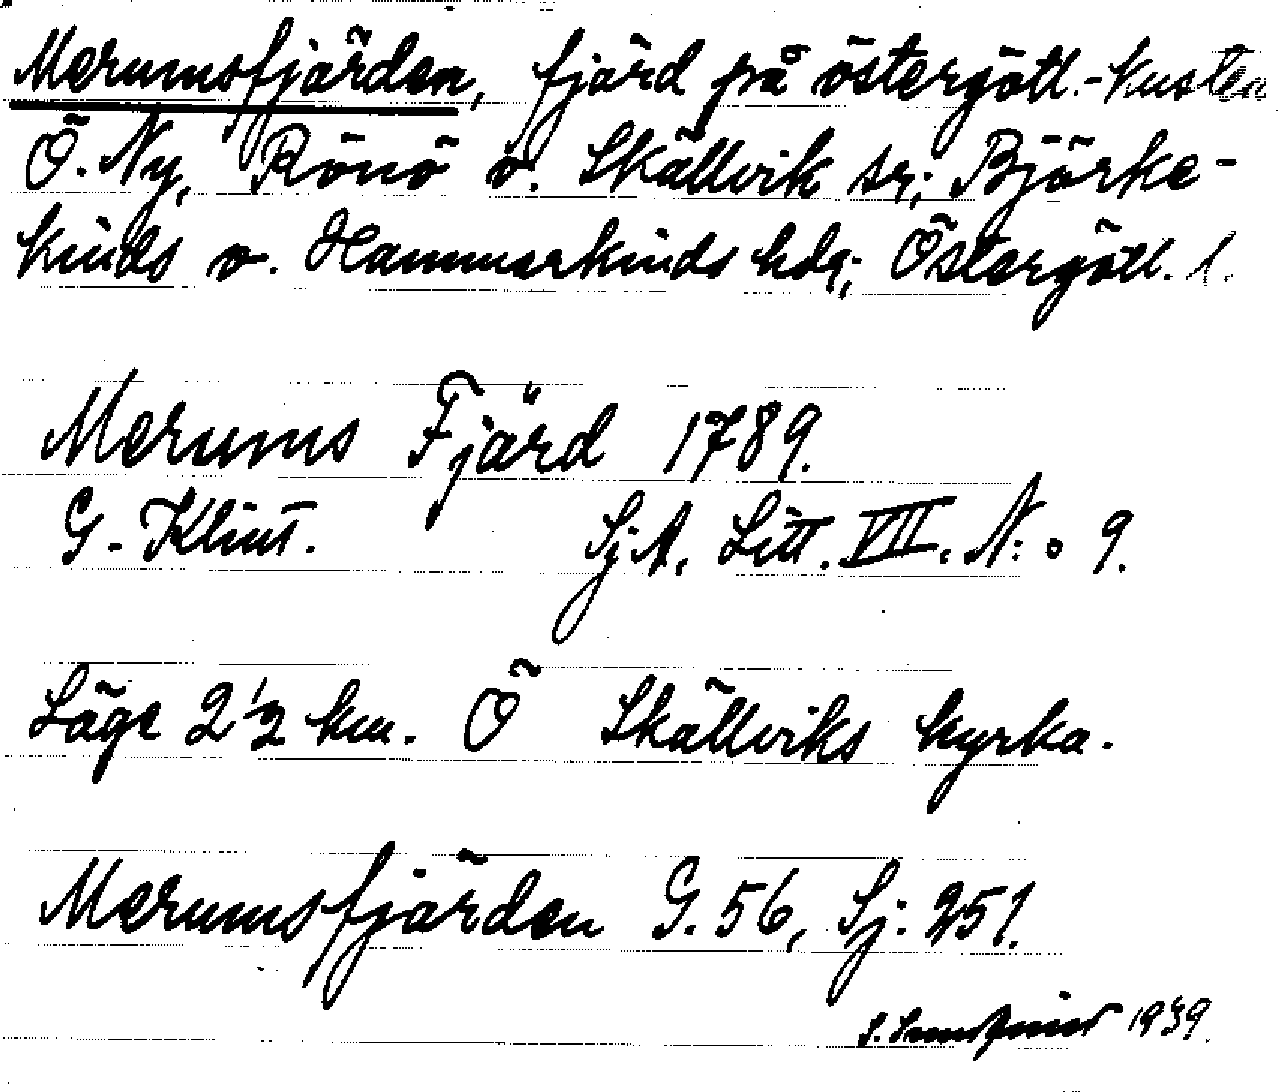 Merumsfjärden, fjärd på östergötl.-kusten
Ö. Ny, Rönö o. Skällvik sr; Björke-
kinds o. Hammarkinds hdr; Östergötl. l.
Merums Fjärd 1789.
G. Klint. SjA. Litt. VII. N:o 9.
Läge 2 1/2 km. Ö Skällviks kyrka.
Merumsfjärden G. 56, Sj: 251.
S. 1939.